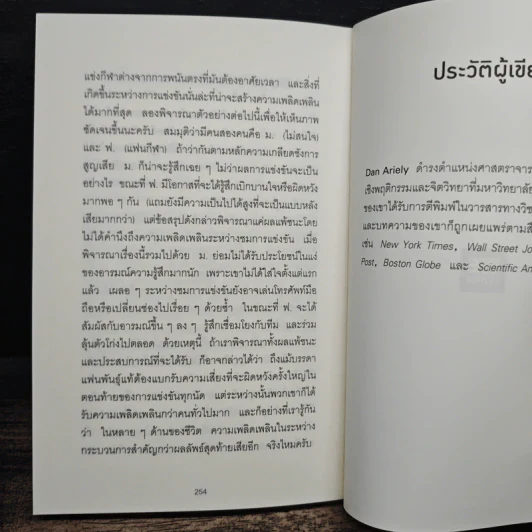 แข่งกีฬาต่างจากการพนันตรงที่มันต้องอาศัยเวลา และสิ่งที่
เกิดขึ้นระหว่างการแข่งขันนั่นล่ะที่น่าจะสร้างความเพลิดเพลิน
ได้มากที่สุด ลองพิจารณาตัวอย่างต่อไปนี้เพื่อให้เห็นภาพ
ชัดเจนขึ้นนะครับ สมมุติว่ามีคนสองคนคือ ม. (ไม่สนใจ)
และ ฟ. (แฟนกีฬา) ถ้าว่ากันตามหลักความเกลียดชังการ
สูญเสีย ม. ก็น่าจะรู้สึกเฉย ๆ ไม่ว่าผลการแข่งขันจะเป็น
อย่างไร ขณะที่ ฟ. มีโอกาสที่จะได้รู้สึกเบิกบานใจหรือผิดหวัง
มากพอ ๆ กัน (แถมยังมีความเป็นไปได้สูงที่จะเป็นแบบหลัง
เสียมากกว่า) แต่ข้อสรุปดังกล่าวพิจารณาแค่ผลแพ้ชนะโดย
ไม่ได้คำนึงถึงความเพลิดเพลินระหว่างชมการแข่งขัน เมื่อ
พิจารณาเรื่องนี้รวมไปด้วย ม. ย่อมไม่ได้รับประโยชน์ในแง่
ของอารมณ์ความรู้สึกมากนัก เพราะเขาไม่ได้ใส่ใจตั้งแต่แรก
แล้ว เผลอ ๆ ระหว่างชมการแข่งขันยังอาจเล่นโทรศัพท์มือ
ถือหรือเปลี่ยนช่องไปเรื่อย ๆ ด้วยซ้ำ ในขณะที่ ฟ. จะได้
สัมผัสกับอารมณ์ขึ้น ๆ ลง ๆ รู้สึกเชื่อมโยงกับทีม และร่วม
ลุ้นตัวโก่งไปตลอด ด้วยเหตุนี้ ถ้าเราพิจารณาทั้งผลแพ้ชนะ
และประสบการณ์ที่จะได้รับ ก็อาจกล่าวได้ว่า ถึงแม้บรรดา
แฟนพันธุ์แท้ต้องแบกรับความเสี่ยงที่จะผิดหวังครั้งใหญ่ใน
ตอนท้ายของการแข่งขันทุกนัด แต่ระหว่างนั้นพวกเขาก็ได้
รับความเพลิดเพลินกว่าคนทั่วไปมาก และก็อย่างที่เรารู้กัน
ว่า ในหลาย ๆ ด้านของชีวิต ความเพลิดเพลินในระหว่าง
กระบวนการสำคัญกว่าผลลัพธ์สุดท้ายเสียอีก จริงไหมครับ
254
ประวัติผู้เขีย
Dan Ariely ดำรงตำแหน่งศาสตราจาร
เชิงพฤติกรรมและจิตวิทยาที่มหาวิทยาลัย
ของเขาได้รับการตีพิมพ์ในวารสารทางวิช
และบทความของเขาก็ถูกเผยแพร่ตามสื่
เช่น New York Times, Wall Street Jo
Post, Boston Globe และ Scientific Am